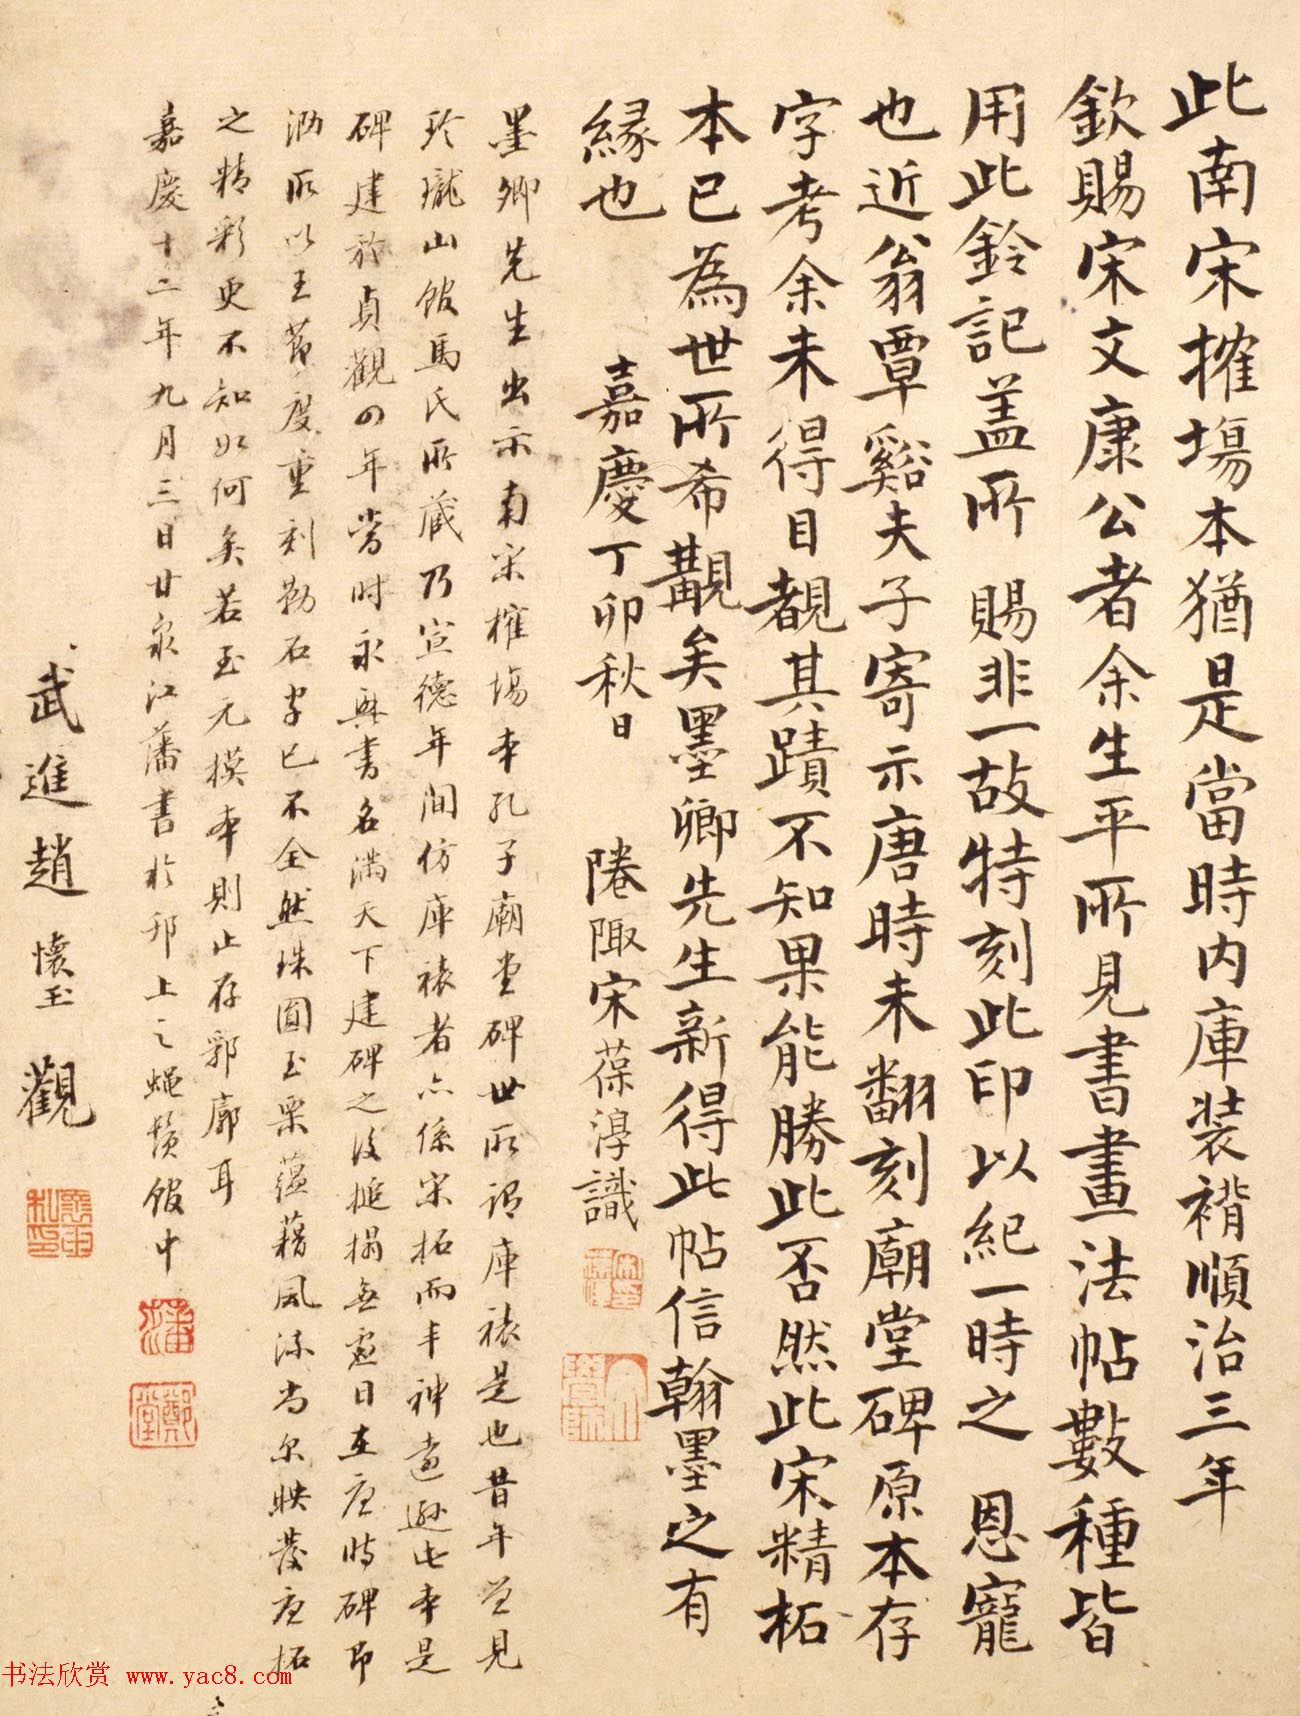 此南宋搉場本猶是當時內庫装褙順治三年
欽賜宋文康公者余生平所見書畫法帖數種皆
用此鈐記盖所 賜非一故特刻此印以紀一時之 恩寵
也近翁覃谿夫子寄示唐時未翻刻廟堂碑原本存
字考余未得目覩其蹟不知果能勝此否然此宋精拓
本已為世所希觏矣墨卿先生新得此帖信翰墨之有
緣也
嘉慶丁卯秋日 陭陬宋葆淳識
墨卿先生出示南宋榷場本孔子廟堂碑世所謂庫裱是也昔年曾見
玲瓏山館馬氏所藏乃宣德年間仿庫裱者亦係宋拓而丰神遠遜此本是
碑建於貞觀四年當時永興書名滿天下建碑之後搥搨無虛日在唐時碑即
泐所以王節度重刻勒石字已不全然珠圓玉栗蘊藉風流尚尔映發唐拓
之精彩更不知如何矣若至元摸本則止存郛廓耳
嘉慶十二年九月三日甘泉江藩書於邗上之蠅鬚館中
武進趙懷玉觀
书法欣赏 www.yac8.com